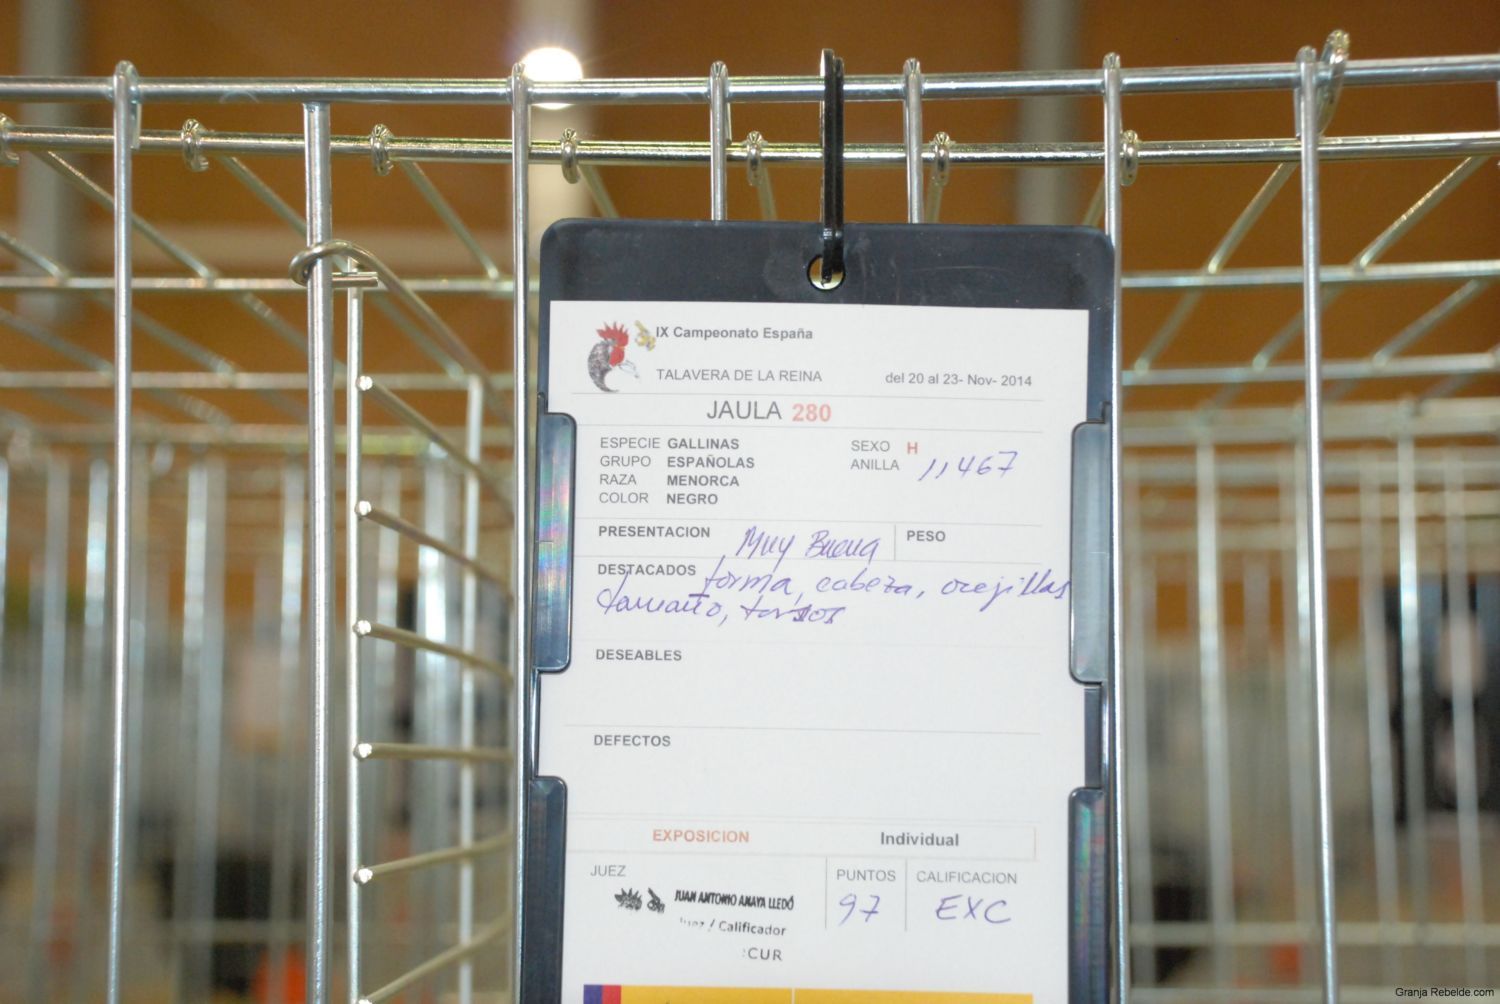 IX Campeonato España
TALAVERA DE LA REINA del 20 al 23- Nov- 2014
JAULA 280
ESPECIE GALLINAS SEXO H
GRUPO ESPAÑOLAS ANILLA 11467
RAZA MENORCA
COLOR NEGRO
PRESENTACION Muy Buena PESO
DESTACADOS forma, cabeza, orejillas
tamaño,
DESEABLES
DEFECTOS
EXPOSICION Individual
JUEZ PUNTOS CALIFICACION
JUAN ANTONIO AMAYA LLEDÓ 97 EXC
Juez / Calificador
:CUR
Granja Rebelde.com